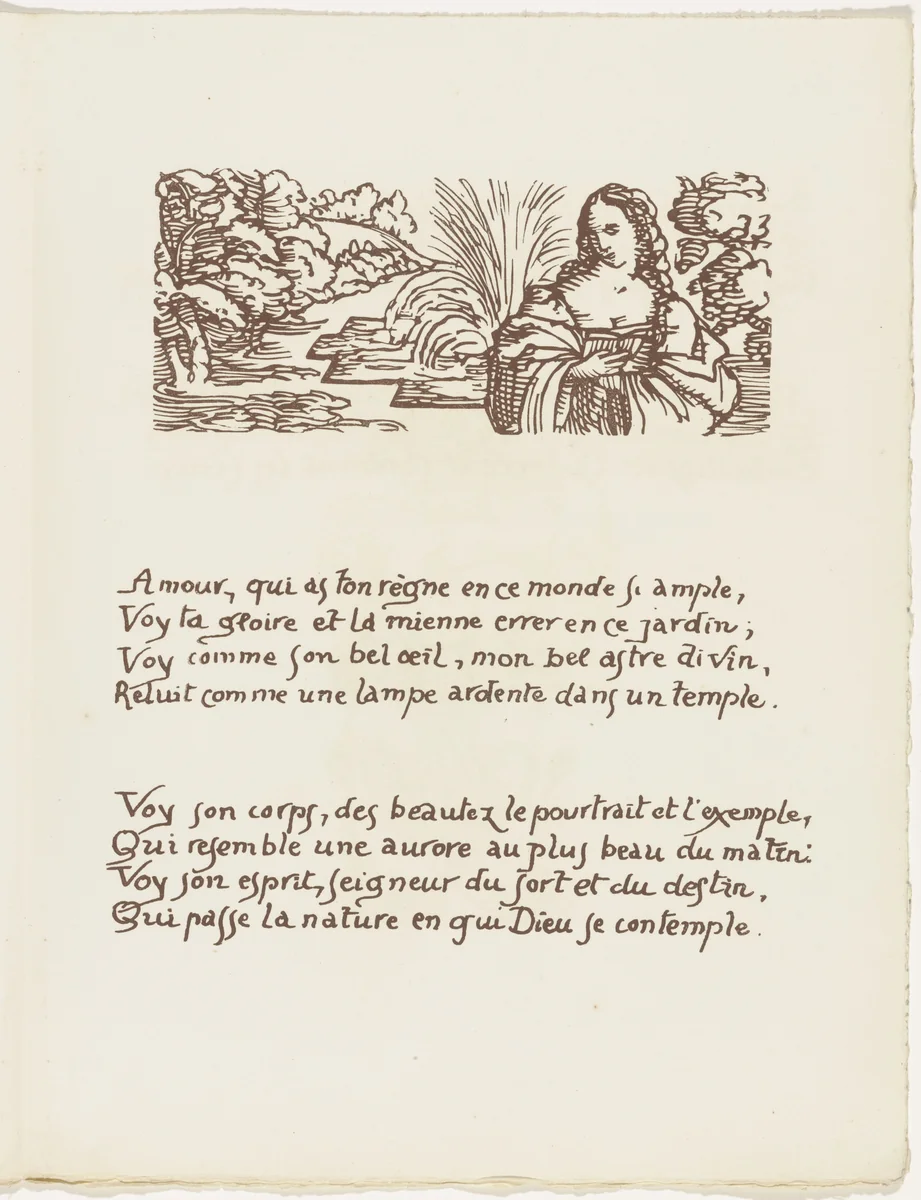 Amour, qui as ton règne en ce monde si ample,
Voy ta gloire et la mienne errer en ce jardin ;
Voy comme son bel œil, mon bel astre divin,
Reluit comme une lampe ardente dans un temple.
Voy son corps, des beautez le pourtrait et l'exemple,
Qui resemble une aurore au plus beau du matin:
Voy son esprit, seigneur du sort et du destin,
Qui passe la nature en qui Dieu se contemple.